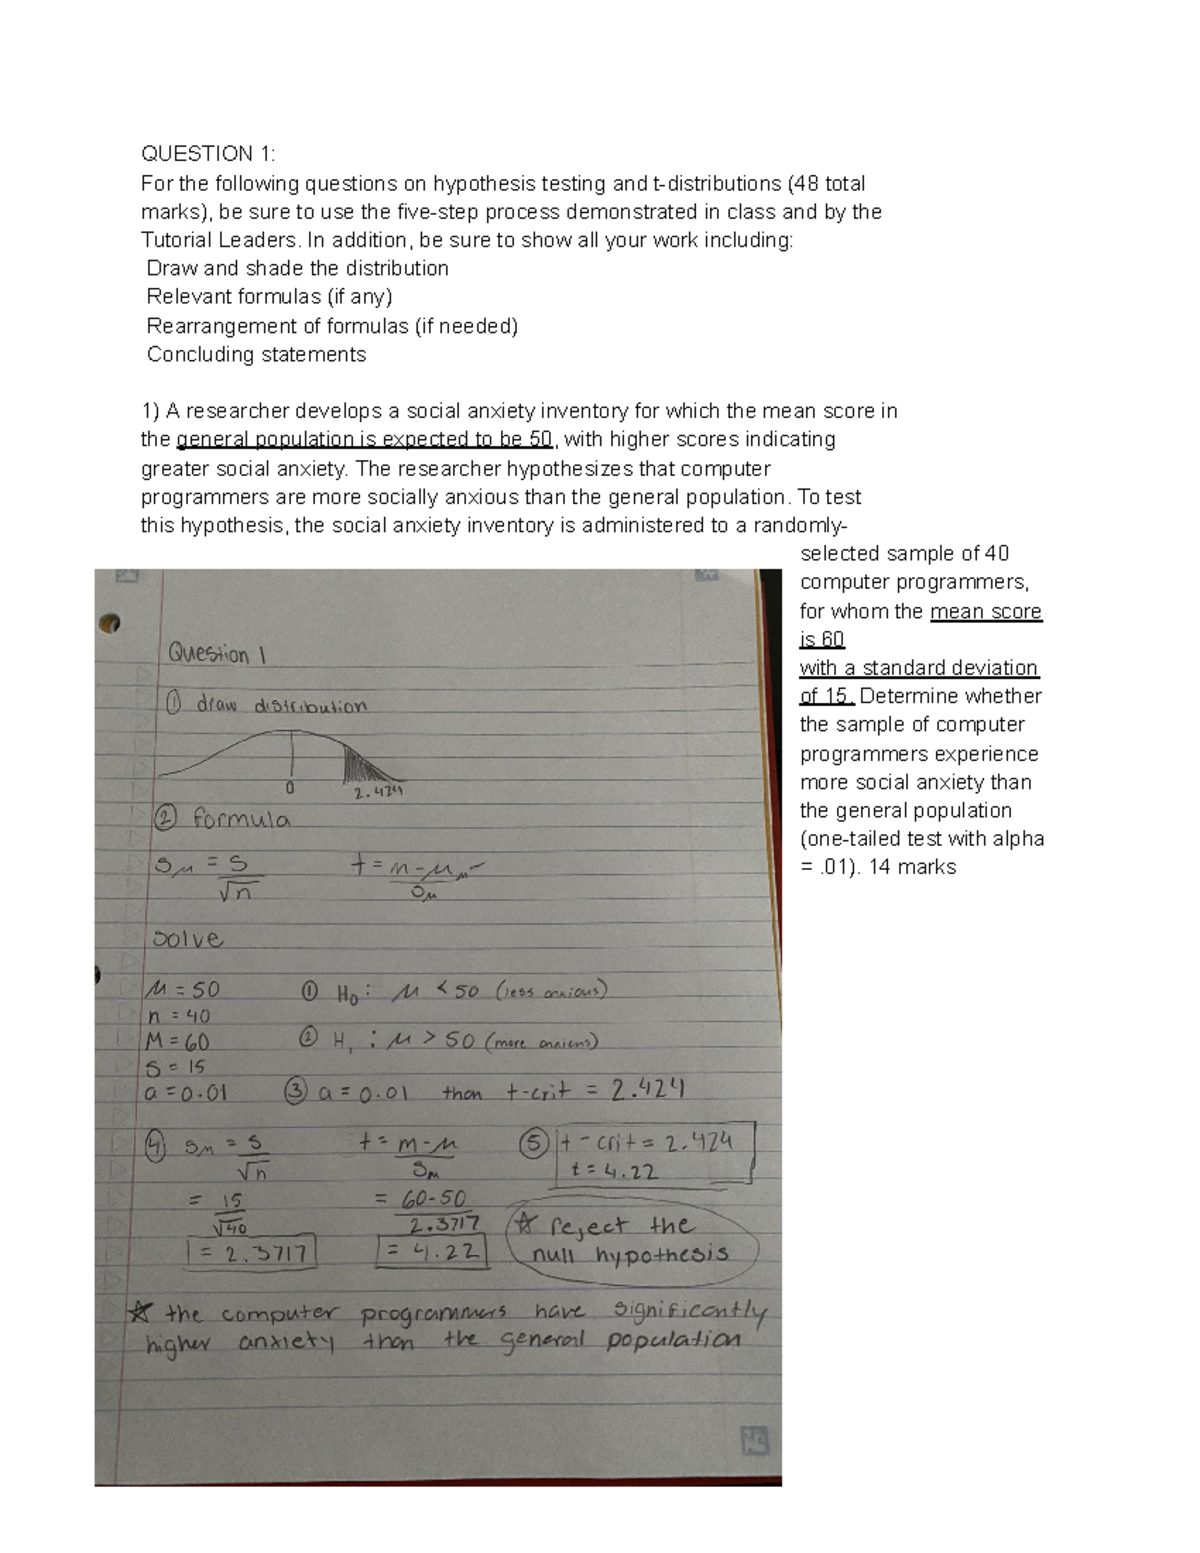 QUESTION 1:
For the following questions on hypothesis testing and t-distributions (48 total
marks), be sure to use the five-step process demonstrated in class and by the
Tutorial Leaders. In addition, be sure to show all your work including:
Draw and shade the distribution
Relevant formulas (if any)
Rearrangement of formulas (if needed)
Concluding statements
1) A researcher develops a social anxiety inventory for which the mean score in
the general population is expected to be 50, with higher scores indicating
greater social anxiety. The researcher hypothesizes that computer
programmers are more socially anxious than the general population. To test
this hypothesis, the social anxiety inventory is administered to a randomly-
selected sample of 40
computer programmers,
for whom the mean score
is 60
with a standard deviation
of 15. Determine whether
the sample of computer
programmers experience
more social anxiety than
the general population
(one-tailed test with alpha
= .01). 14 marks
Question 1
① draw distribution
0 2.424
② formula
SM = S/√n t = M-μM/SM
solve
M = 50 ① H0: μ < 50 (less anxious)
n = 40
M = 60 ② H1: μ > 50 (more anxious)
S = 15
a = 0.01 ③ a = 0.01 than t-crit = 2.424
④ SM = S/√n t = M-μ/SM ⑤ t-crit = 2.424
t = 4.22
= 15/√40 = 60-50/2.3717 ☆ reject the
= 2.3717 = 4.22 null hypothesis
☆ the computer programmers have significantly
higher anxiety than the general population